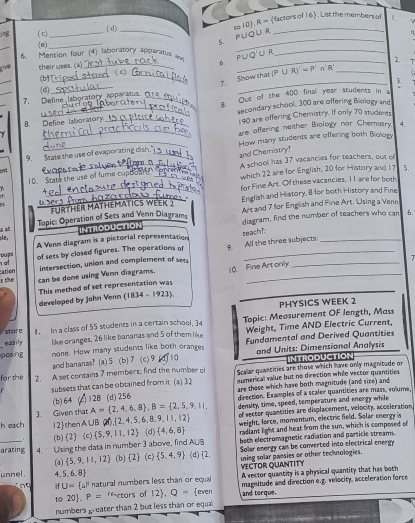 (c) (d)
(e)
6. Mention four (4) laboratory apparatus and
their uses. (a) test tube rack
(b) Tripod stand (c) Conical flask
(d) spatular
7. Define laboratory apparatus. are equip
used during laboratory practicals
8. Define laboratory is a place where
chemical practicals are being
done
9. State the use of evaporating dish. is used
evaporate solven
10. State the use of fume cupboard.
ted enclosure designed to protect
users from hazardous fumes
FURTHER MATHEMATICS WEEK 2
Topic: Operation of Sets and Venn Diagrams
INTRODUCTION
A Venn diagram is a pictorial representation
of sets by closed figures. The operations of
intersection, union and complement of sets
can be done using Venn diagrams.
This method of set representation was
developed by John Venn (1834 – 1923).
1. In a class of 55 students in a certain school, 34
like oranges, 26 like bananas and 5 of them like
none. How many students like both oranges
and bananas? (a) 5 (b) 7 (c) 9 (d) 10
2. A set contains 7 members; find the number of
subsets that can be obtained from it (a) 32
(b) 64 (c) 128 (d) 256
3. Given that A = {2, 4, 6, 8}, B = {2, 5, 9, 11,
12} then AUB (a) {2, 4, 5, 6, 8, 9, 11, 12}
(b) {2} (c) {5, 9, 11, 12} (d) {4, 6, 8}
4. Using the data in number 3 above, find AUB
(a) {5, 9, 11, 12} (b) {2} (c) {5, 4, 9} (d) {2,
4, 5, 6, 8}
If U = {all natural numbers less than or equal
to 20}, P = {factors of 12}, Q = {even
numbers greater than 2 but less than or equal
to 10}, R = {factors of 16}. List the members of
5. P U Q U R
6. P U Q' U R
7. Show that (P U R)' = P' n R'
8. Out of the 400 final year students in a
secondary school, 300 are offering Biology and
190 are offering Chemistry. If only 70 students
are offering neither Biology nor Chemistry.
How many students are offering both Biology
and Chemistry?
A school has 37 vacancies for teachers, out of
which 22 are for English, 20 for History and 17
for Fine Art. Of these vacancies, 11 are for both
English and History, 8 for both History and Fine
Art and 7 for English and Fine Art. Using a Venn
diagram, find the number of teachers who can
teach?:
9. All the three subjects:
10. Fine Art only:
PHYSICS WEEK 2
Topic: Measurement OF length, Mass
Weight, Time AND Electric Current,
Fundamental and Derived Quantities
and Units: Dimensional Analysis
INTRODUCTION
Scalar quantities are those which have only magnitude or
numerical value but no direction while vector quantities
are those which have both magnitude (and size) and
direction. Examples of a scaler quantities are mass, volume,
density, time, speed, temperature and energy while
of vector quantities are displacement, velocity, acceleration,
weight, force, momentum, electric field. Solar energy is
radiant light and heat from the sun, which is composed of
both electromagnetic radiation and particle streams.
Solar energy can be converted into electrical energy
using solar pansies or other technologies.
VECTOR QUANTITY
A vector quantity is a physical quantity that has both
magnitude and direction e.g. velocity, acceleration force
and torque.